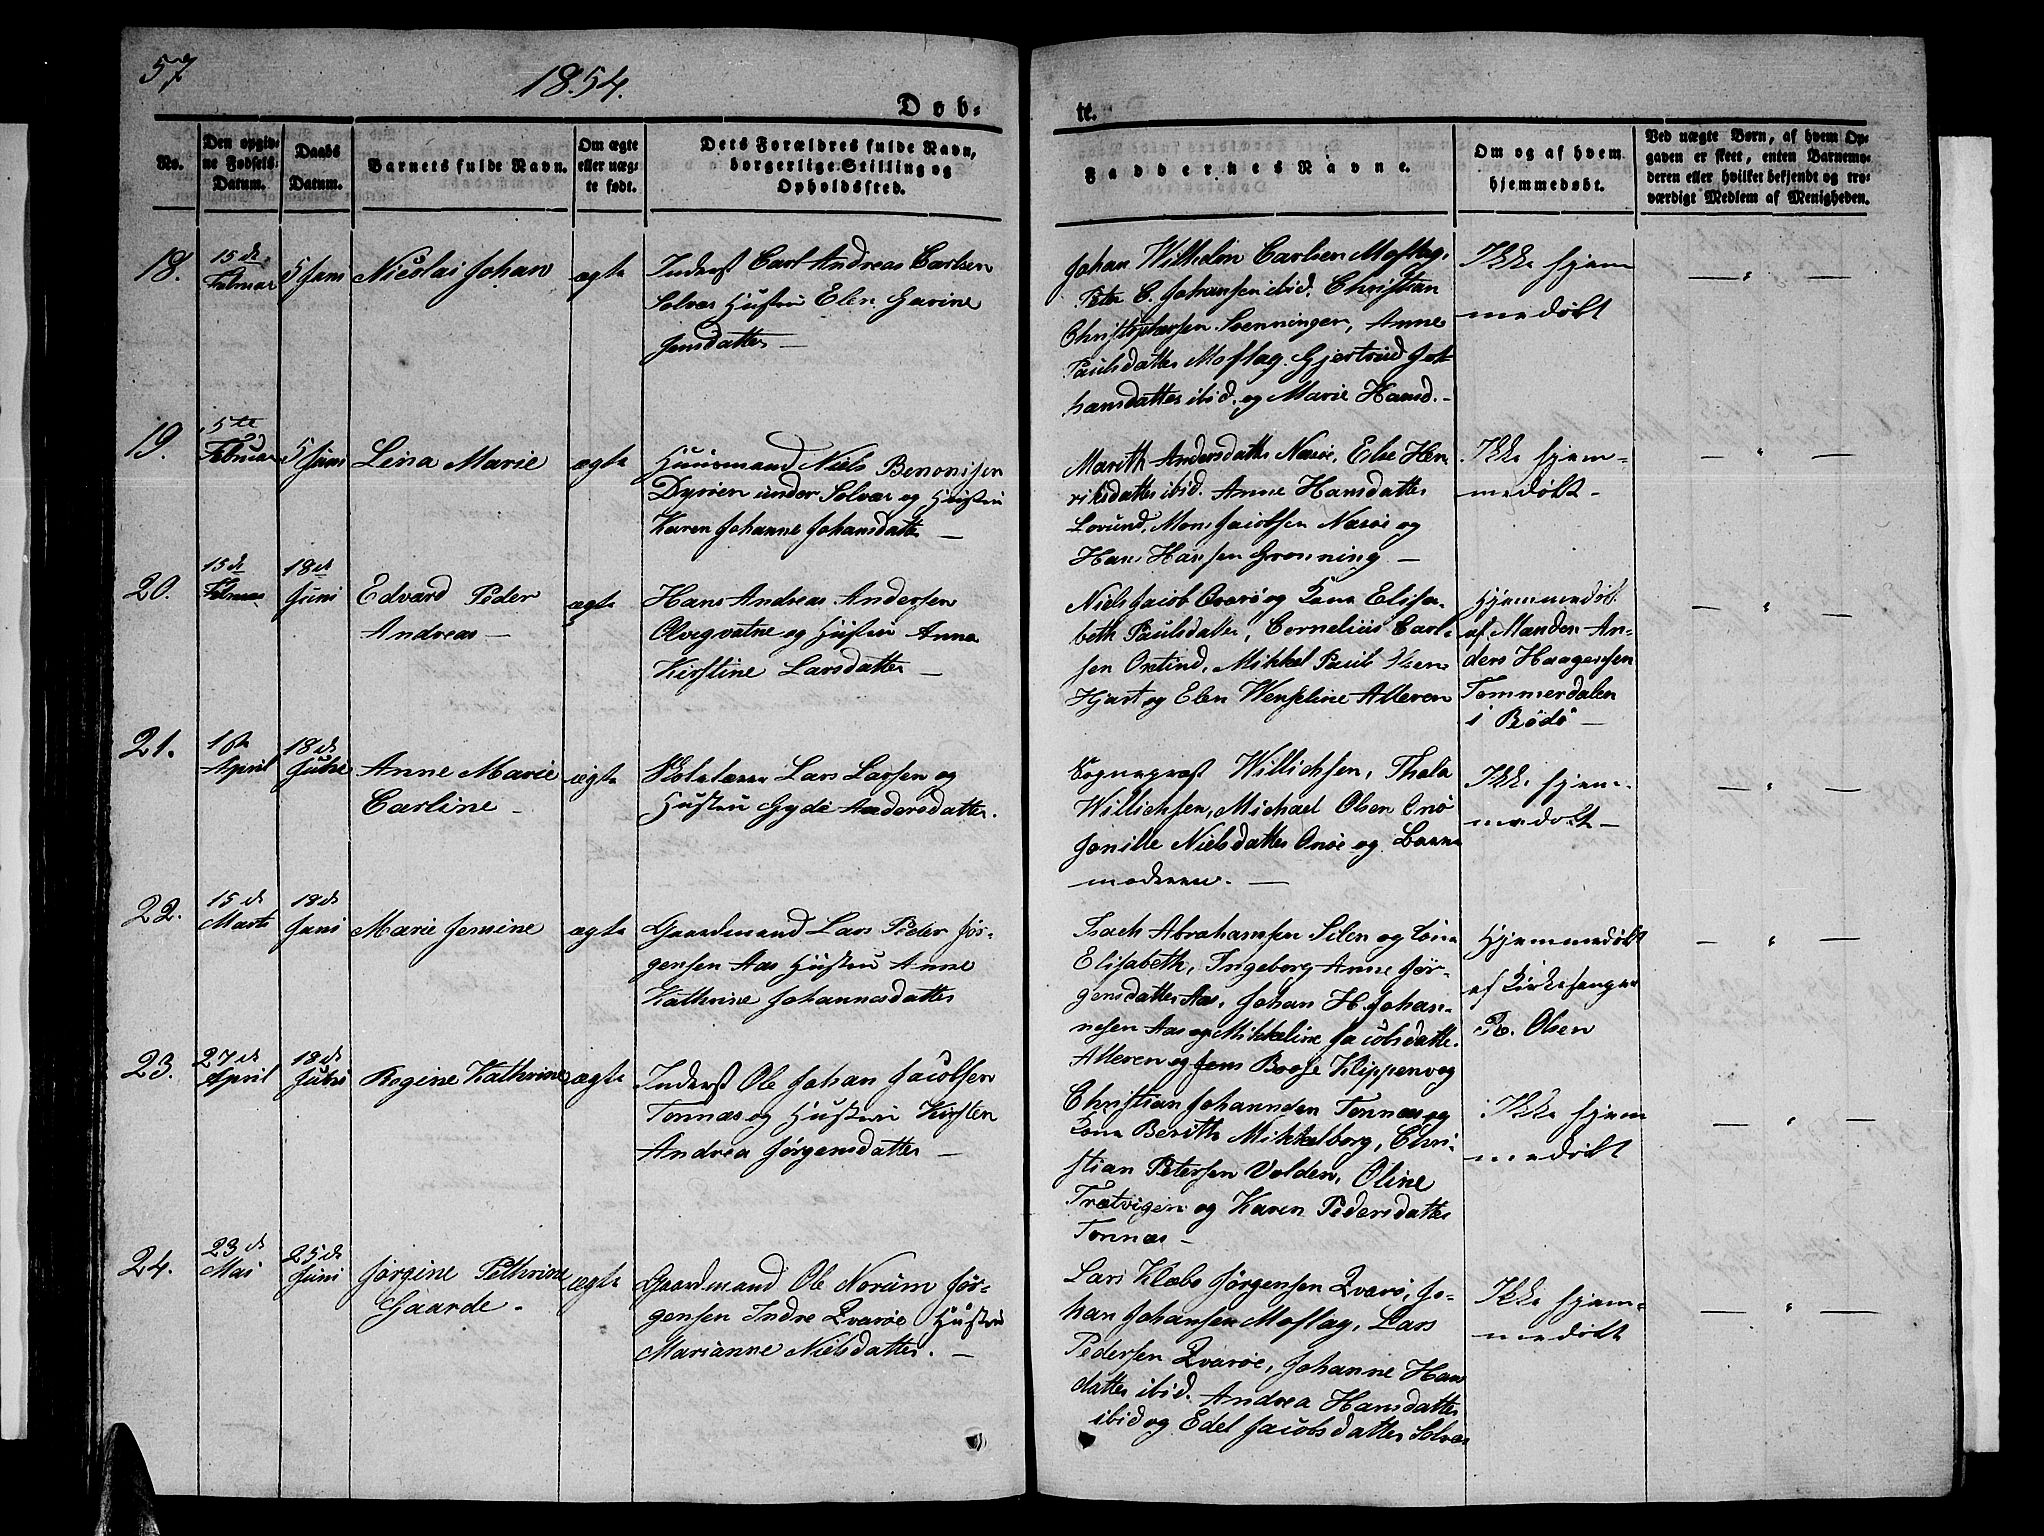 57
1854.
Døb-
te.
No.
Den opgiv-
ne Fødsels
Datum.
Daabs
Datum.
Barnets fulde Navn.
Om ægte
eller uæg-
te født.
Dets Forældres fulde Navn,
borgerlige Stilling og
Opholdssted.
Faddernes Navne.
Om og af hvem
hjemmedøbt.
Ved uægte Børn, af hvem Op-
gaven er skeet, enten Barnemo-
deren eller hvilket bekjendt og tro-
værdigt Medlem af Menigheden.
18.
15de
Februar
5 Juni
Nicolai Johan
ægte
Inderst Carl Andreas Carlsen
Solvær Hustru Elen Garine
Jensdatter
Johan Wilhelm Carlsen Moflag,
Peter C. Johansen ibid. Christian
Christophersen Svenningen, Anne
Paulsdatter Moflag. Gjertrud Jo-
hansdatter ibid. og Marie Hansd.
Ikke hjem
medøbt
19.
5te
Februar
5 Juni
Lina Marie
ægte
Huusmand Niels Benonisen
under Solvær og Hustru
Karen Johanne Johansdatter
Marith Andersdatter Næsøe, Else Hen-
riksdatter ibid. Anne Hansdatter
Lovund, Mons Jacobsen Næsøe og
Hans Hansen Grønning
Ikke hjem-
medøbt
20.
15de
Februar
18de
Juni
Edvard Peder
Andreas
ægte
Hans Andreas Andersen
Olvegvatne og Hustru Anne
Kirstine Larsdatter
Niels Jacob og Kone Elisa-
beth Paulsdatter, Cornelius Carl-
sen Oxtind, Mikkel Paul
Hjart og Elen Wenseline Alteren
Hjemmedøbt
af Manden An-
ders Haagensen
Tommerdalen
i Bødø
21.
16de
April
18de
Juni
Anne Marie
Carline
ægte
Skolelærer Lars Larsen og
Hustru Gyde Andersdatter.
Sognepræst Willichsen, Thala
Willichsen, Michael Olsen Onø
Jonille Nielsdatter Onøe og Barne
moderen.
Ikke hjem-
medøbt
22.
15de
Marts
18de
Juni
Marie Jensine
ægte
Gaardmand Lars Peder Jør-
gensen Aas Hustru Anne
Kathrine Johannesdatter
Isach Abrahamsen Silen og Kone
Elisabeth, Ingeborg Anne Jør-
gensdatter Aas, Johan H. Johan-
nesen Aas og Mikkeline Jacobsdatter
Alteren og Jens Klippenvog
Hjemmedøbt
af Kirkesanger
R. Olsen
23.
27de
April
18de
Juni
Regine Kathrine
ægte
Inderst Ole Johan Jacobsen
Tonnæs og Hustru Kirsten
Andrea Jørgensdatter
Christian Johannden Tonnæs og
Kone Berith Mikkelborg, Chri-
stian Petersen Valden, Oline
Trætvigen og Karen Pedersdatter
Tonnæs
Ikke hjem
medøbt
24.
23de
Mai
25de
Juni
Jørgine Pethrine
Gaarde
ægte
Gaardmand Ole Norum Jør-
gensen Indre Qvarøe Hustru
Marianne Nielsdatter.
Lars Klæbo Jørgensen Qvarø, Jo-
han Johansen Moflag, Lars
Pedersen Qvarøe, Johanne Hans
datter ibid. Andrea Hansdatter
ibid og Edel Jacobsdatter Solvær
Ikke hjem-
medøbt